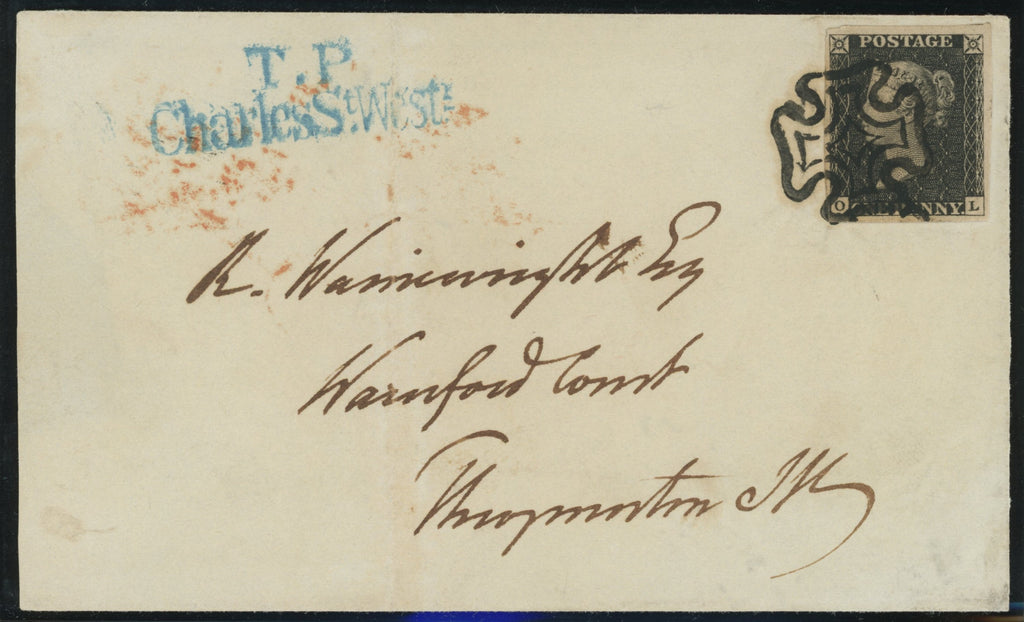 T.P
Charles St. Westr
POSTAGE
O ONE PENNY. L
R. Wainewright Esq
Warnford Court
Throgmorton St